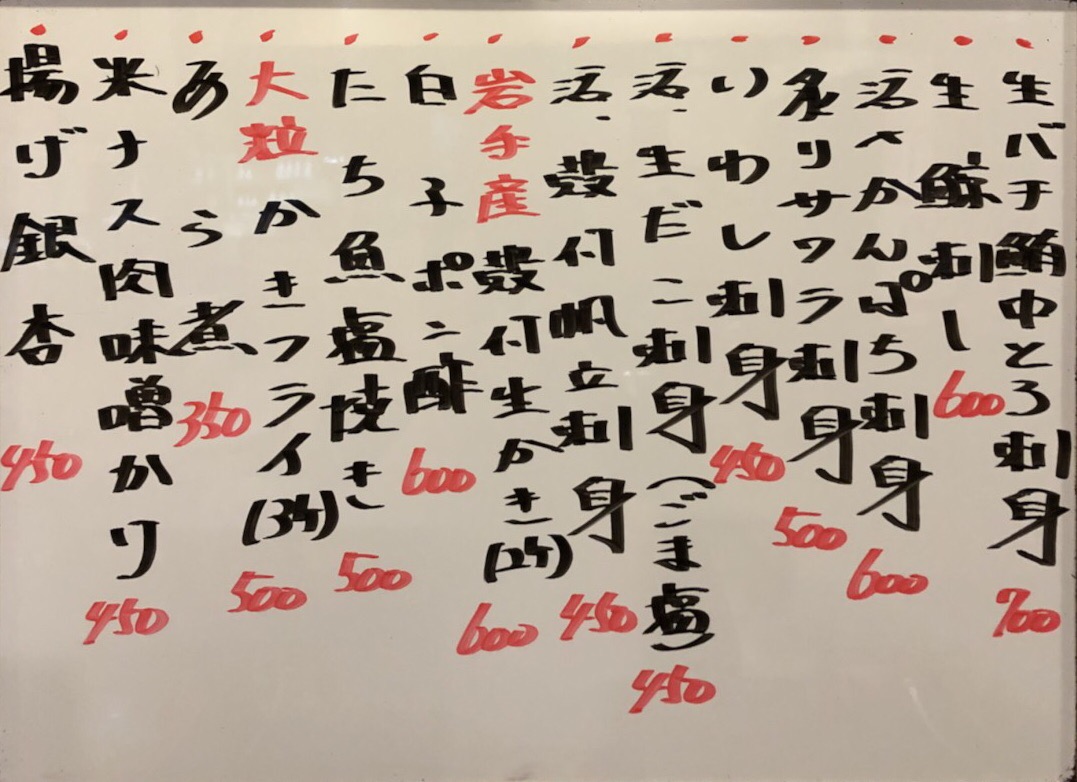 生バチ鮪中とろ刺身 700
生鯨刺し 600
活〆かんぱち刺身 600
炙りサワラ刺身 500
いわし刺身 450
活、生だこ刺身(ごま塩) 450
活、殻付帆立刺身 450
岩手産殻付生かき(2ケ) 600
白子ポン酢 600
たち魚塩焼き 500
大粒かきフライ(3ケ) 500
あら煮 350
米ナス肉味噌かけ 450
揚げ銀杏 450